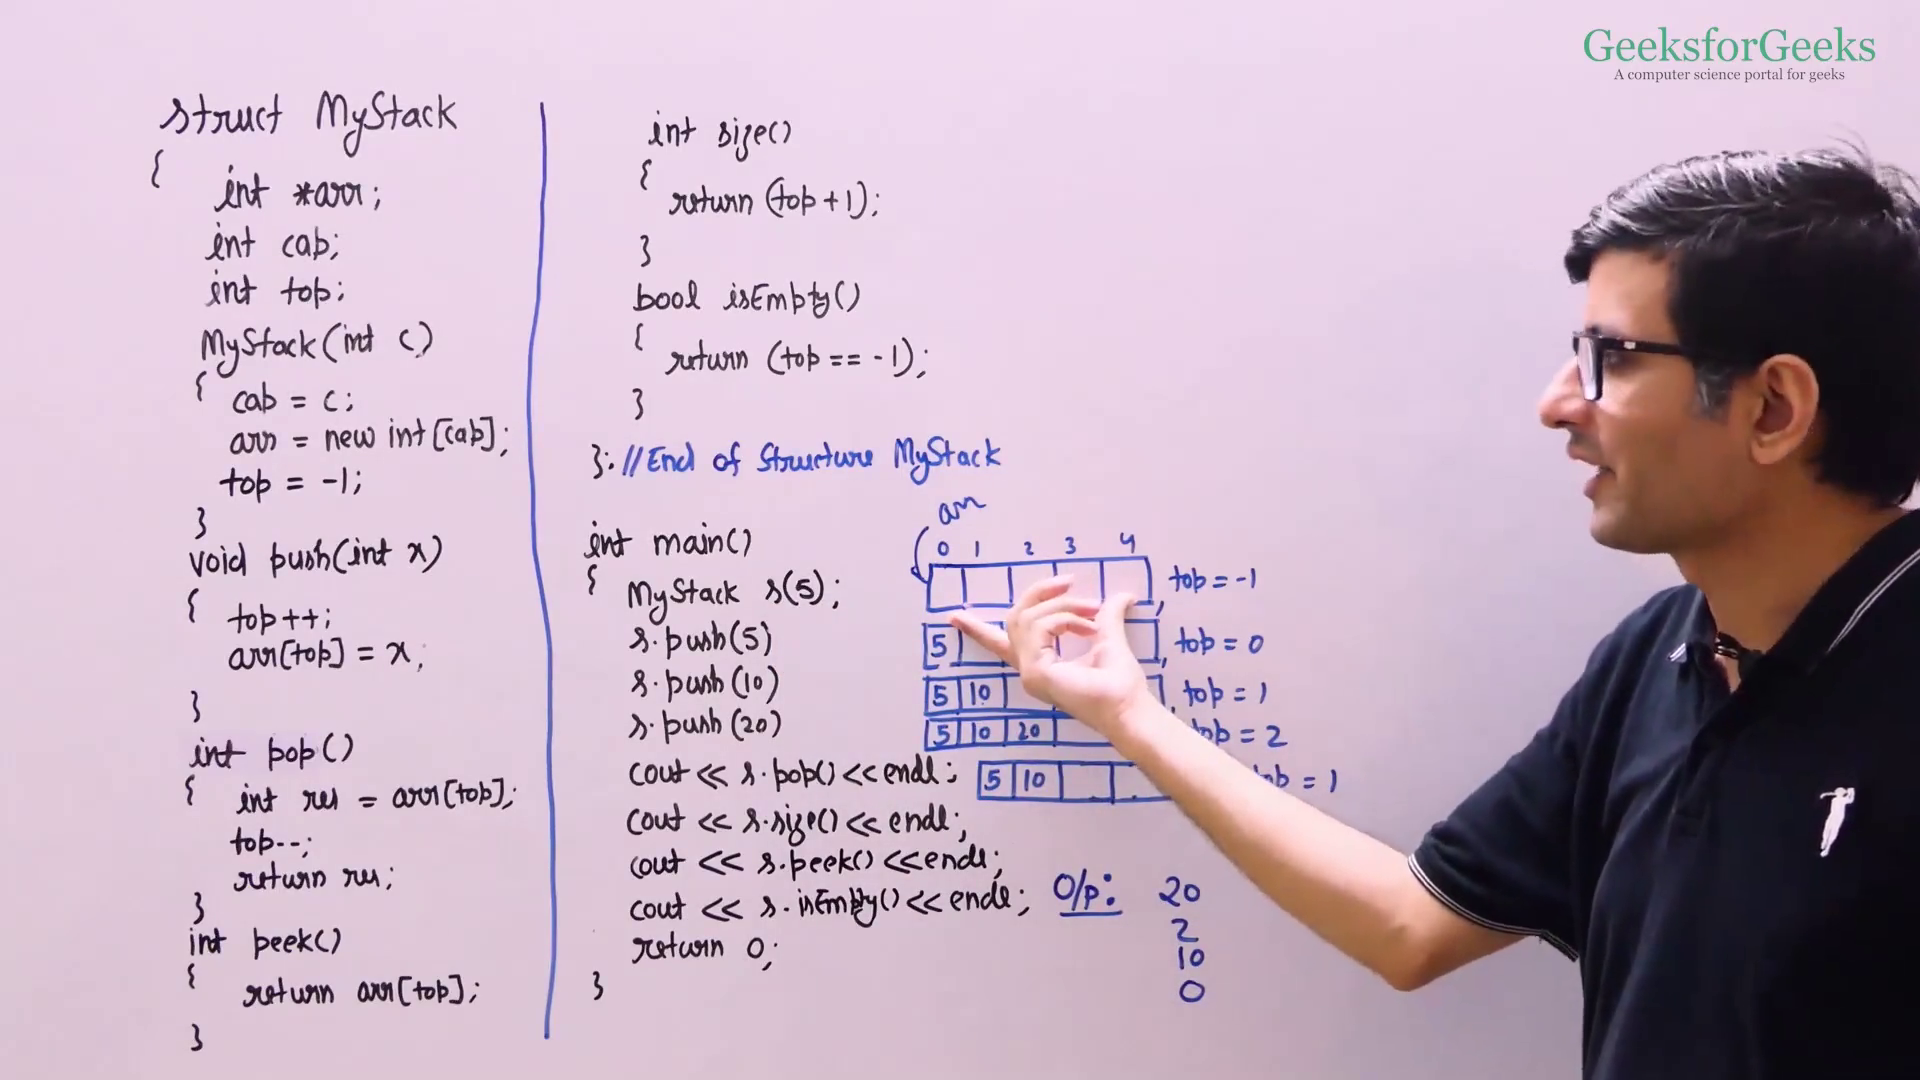 GeeksforGeeks
A computer science portal for geeks
struct MyStack
{
int *arr;
int cap;
int top;
MyStack(int c)
{ cap = c;
arr = new int[cap];
top = -1;
}
void push(int x)
{ top++;
arr[top] = x;
}
int pop()
{ int res = arr[top];
top--;
return res;
}
int peek()
{ return arr[top];
}
int size()
{
return (top+1);
}
bool isEmpty()
{ return (top == -1);
}
}; //End of Structure MyStack
int main()
{ MyStack s(5);
s.push(5)
s.push(10)
s.push(20)
cout << s.pop() << endl;
cout << s.size() << endl;
cout << s.peek() << endl;
cout << s.isEmpty() << endl;
return 0;
}
arr
0 1 2 3 4
, top = -1
5 , top = 0
5 10 , top = 1
5 10 20 top = 2
5 10 top = 1
O/p: 20
2
10
0